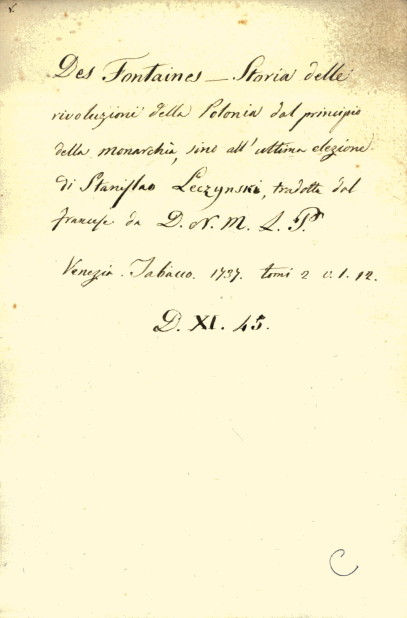 Des Fontaines — Storia delle
rivoluzioni della Polonia dal principio
della monarchia, sino all'ultima elezione
di Stanislao Leczynski, tradotte dal
francese da D. N. M. L. P.
Venezia. Tabacco. 1737. tomi 2 v. 1. 12.
D. XI. 45.
C